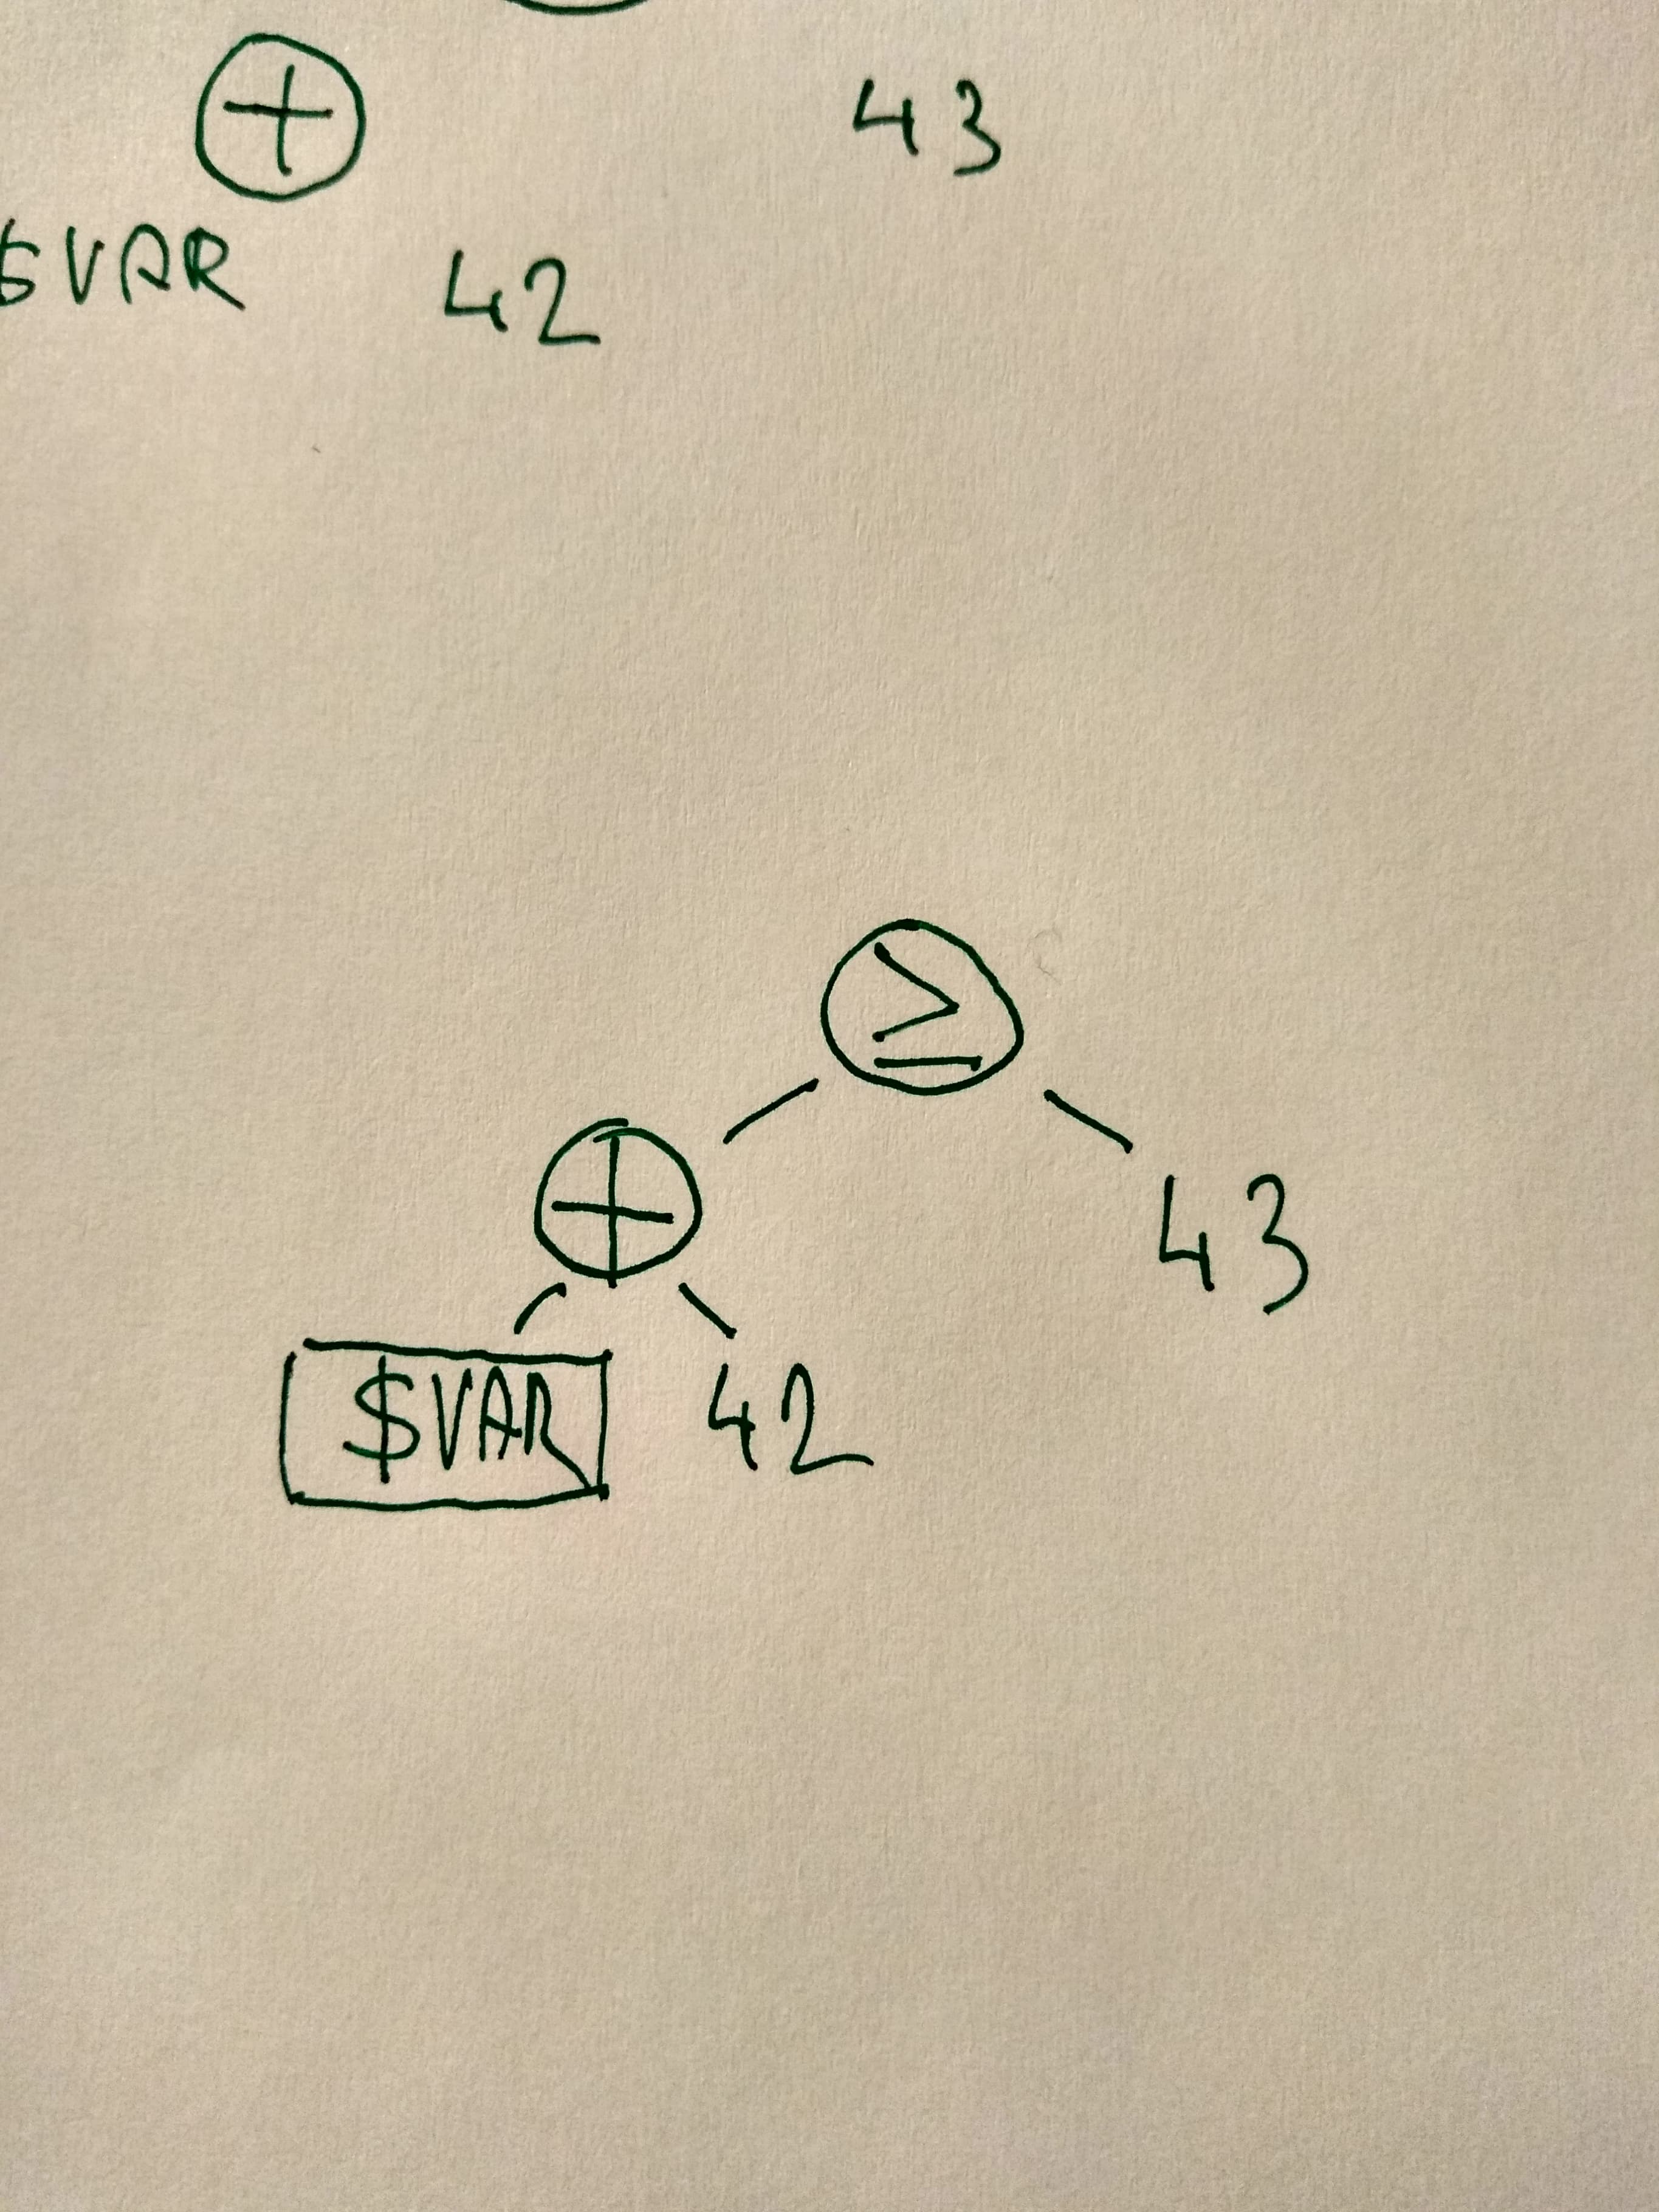 + 43
$VAR 42
≥
+ 43
$VAR 42